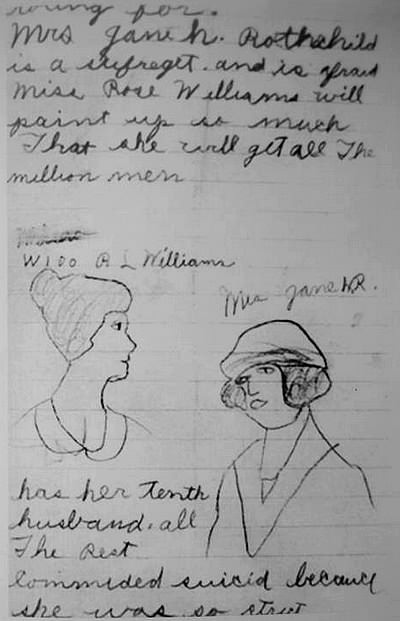 for.
Mrs Jane h. Rothshild
is a sufreget. and is afraid
Miss Rose Williams will
paint up so much
That she will get all The
million men
W100 R L Williams
Mrs Jane h.R.
has her tenth
husband. all
The Rest
Commided suicid because
she was so strut